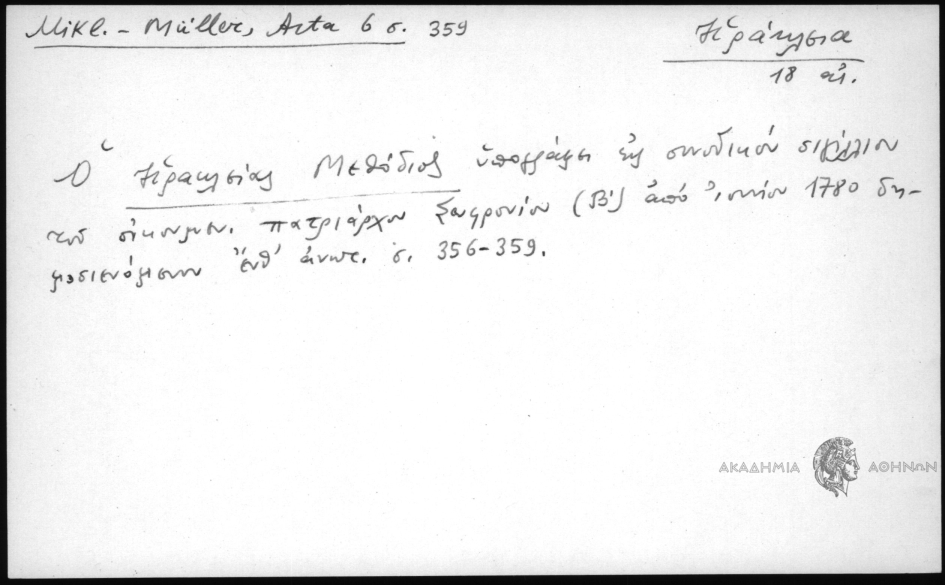 Mikl. - Müller, Acta 6 σ. 359
Ἡράκλεια
18 αἰ.
Ὁ Ἡρακλείας Μεθόδιος ὑπογράφει εἰς συνοδικόν σιγίλλιον
τοῦ οἰκουμεν. πατριάρχου Σωφρονίου (Β') ἀπό Ἰουνίου 1780 δη-
μοσιευόμενον ἔνθ' ἀνωτ. σ. 356-359.
ΑΚΑΔΗΜΙΑ ΑΘΗΝΩΝ